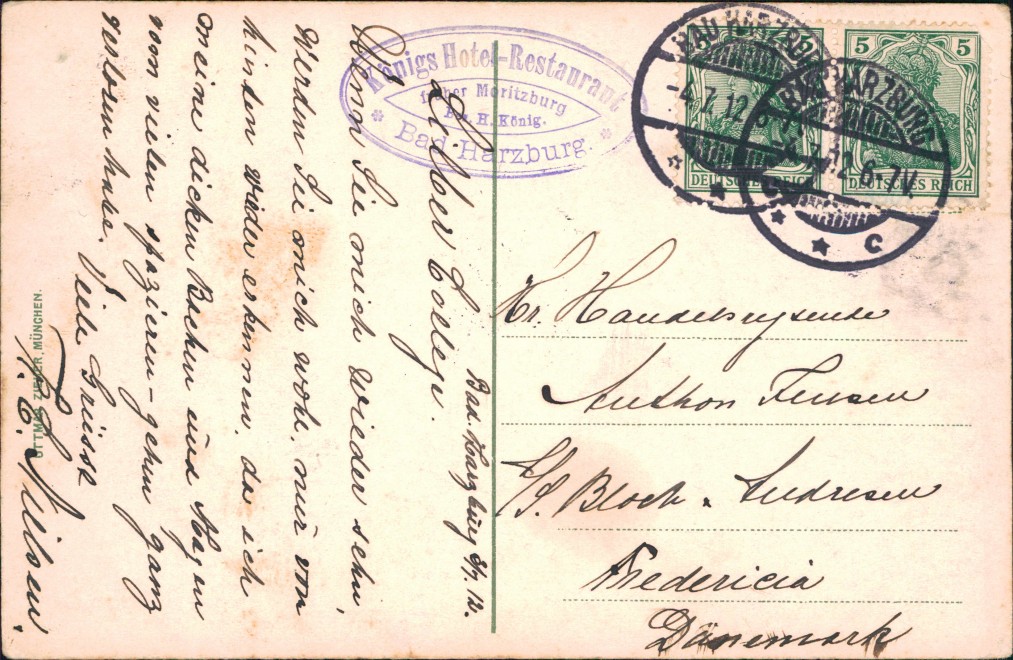 Königs Hotel-Restaurant
früher Moritzburg
Bes. H. König.
Bad Harzburg.
BAD HARZBURG
-4.7.12
BAD HARZBURG
7.12 6-7V.
C
5
5
DEUTSCHES REICH
DEUTSCHES REICH
Bad. Harzburg 3/7. 12.
Lieber College.
Wenn Sie mich wieder sehn,
werden Sie mich wohl nur von
hinten wieder erkennen, da ich
meine dicken Backen und Magen
vom vielen spazieren-gehen ganz
verloren habe.
Viele Grüsse
N. C. Nilsen.
Hr. Handelsrejsende
Anthon Jensen
Bloch & Andresen
Fredericia
Dänemark
OTTMAR ZIEHER, MÜNCHEN.